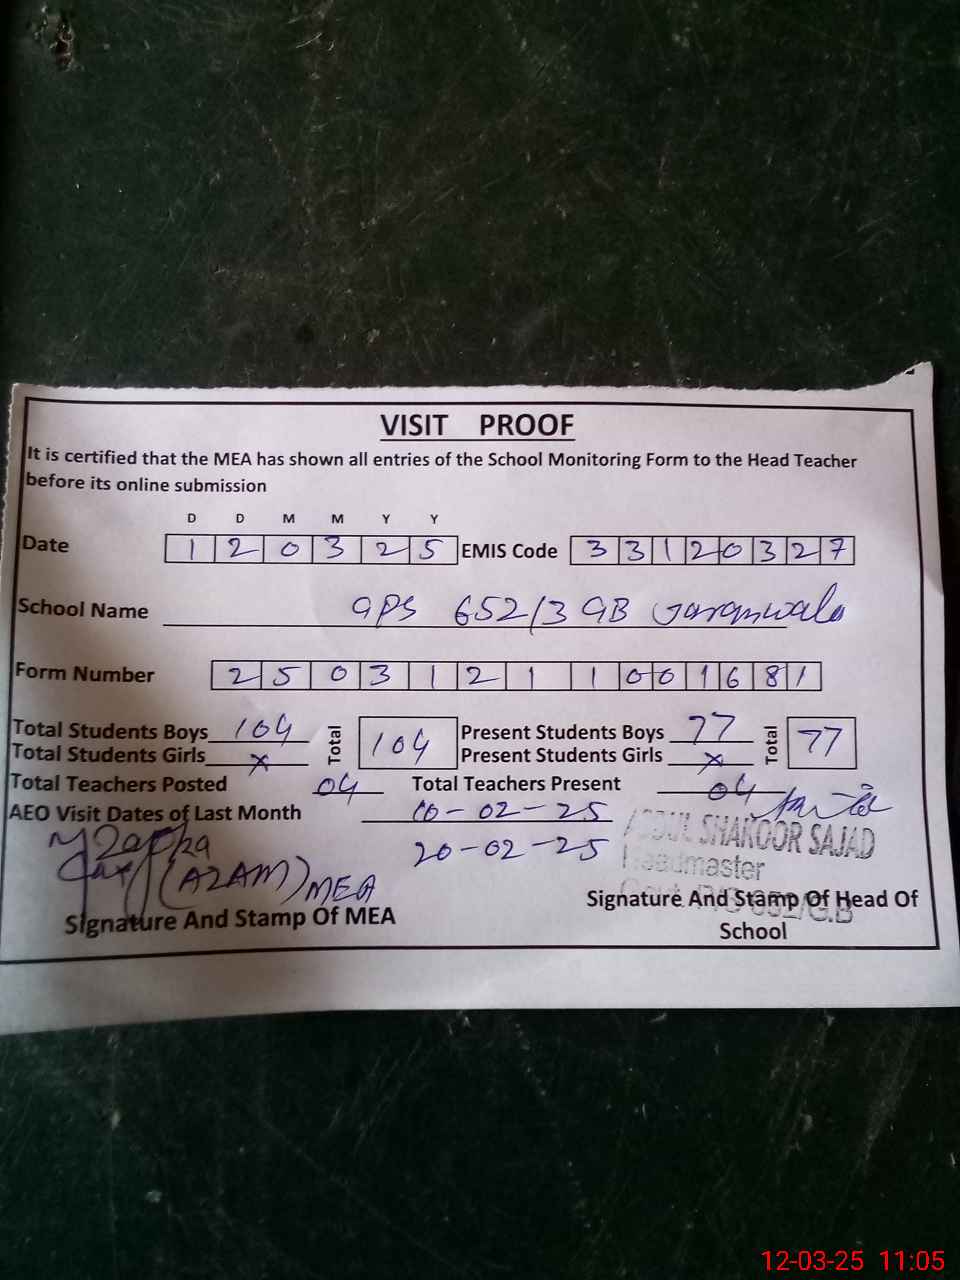 VISIT PROOF
It is certified that the MEA has shown all entries of the School Monitoring Form to the Head Teacher
before its online submission
D D M M Y Y
Date 1 2 0 3 2 5 EMIS Code 3 3 1 2 0 3 2 7
School Name GPS 652/3 GB Jaranwala
Form Number 2 5 0 3 1 2 1 1 0 0 1 6 8 1
Total Students Boys 104 Total 104 Present Students Boys 77 Total 77
Total Students Girls x Present Students Girls x
Total Teachers Posted 04 Total Teachers Present 04
AEO Visit Dates of Last Month 10-02-25
20-02-25
ABDUL SHAKOOR SAJAD
Headmaster
Govt. P/S 652/G.B
(AZAM) MEA
Signature And Stamp Of MEA
Signature And Stamp Of Head Of
School
12-03-25 11:05